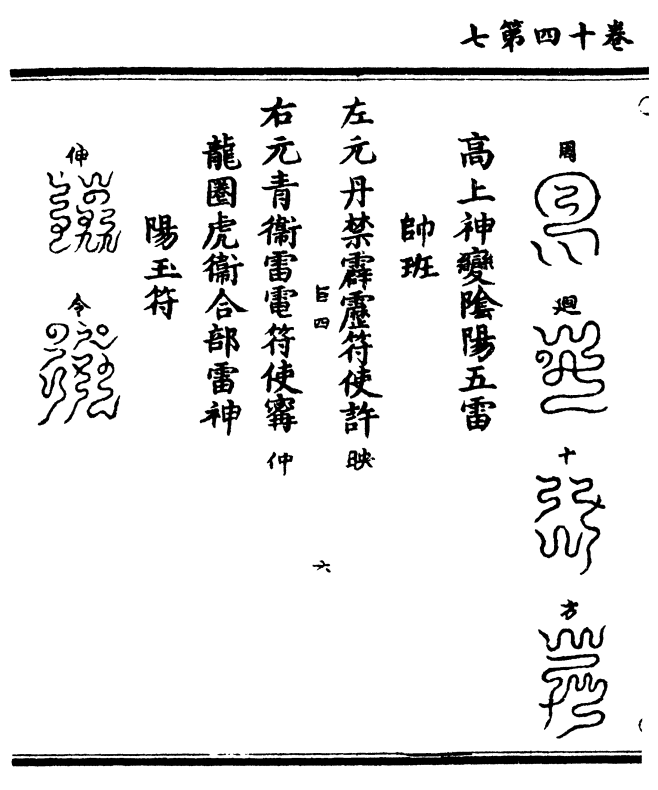 卷十四第七
周
廻
十
方
高上神變陰陽五雷
帥班
左元丹禁霹靂符使許映
巨四
六
右元青衞雷電符使甯仲
龍圈虎衞合部雷神
陽玉符
伸
令